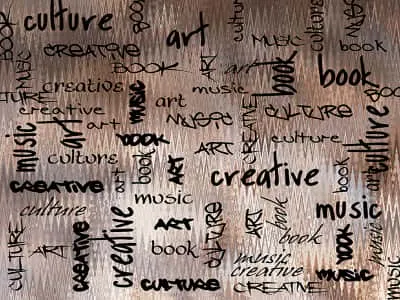 culture
BOOK
BOOK
art
culture
culture
MUSIC
MUSIC
book
CREATIVE
BOOK
ART
art
book
book
MUSIC
creative
music
art
music
creative
MUSIC
CULTURE
CREATIVE
culture
music
art
art
BOOK
ART
culture
culture
book
art
ART
book
art
creative
CREATIVE
music
culture
music
ART
CULTURE
ART
book
book
CULTURE
ART
CREATIVE
creative
book
book
music
music
creative
music
CULTURE
CREATIVE
music